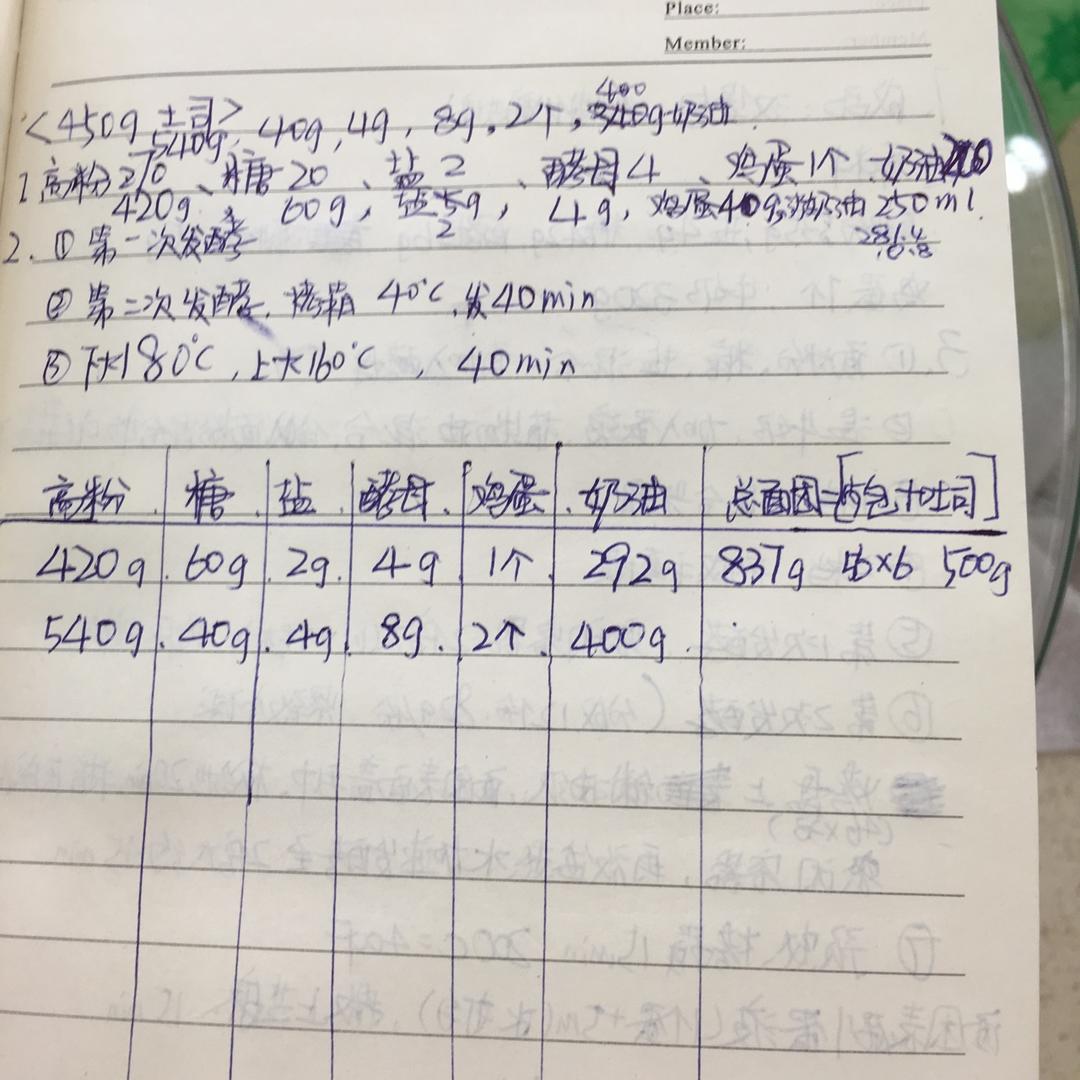 Place:
Member:
<450g 土司>
540g, 40g, 4g, 8g, 2个, 400 340g奶油
1. 高粉270、糖20、盐2、酵母4、鸡蛋1个、奶油200
420g, 60g, 盐5g, 4g, 鸡蛋40g, 奶油250ml.
2
2. ① 第一次发酵
② 第二次发酵, 烤箱 40℃, 发40min
③ 下火180℃, 上火160℃, 40min
高粉 糖 盐 酵母 鸡蛋 奶油 总面团=[包+吐司]
420g 60g 2g 4g 1个 292g 837g 56×6 500g
540g 40g 4g 8g 2个 400g